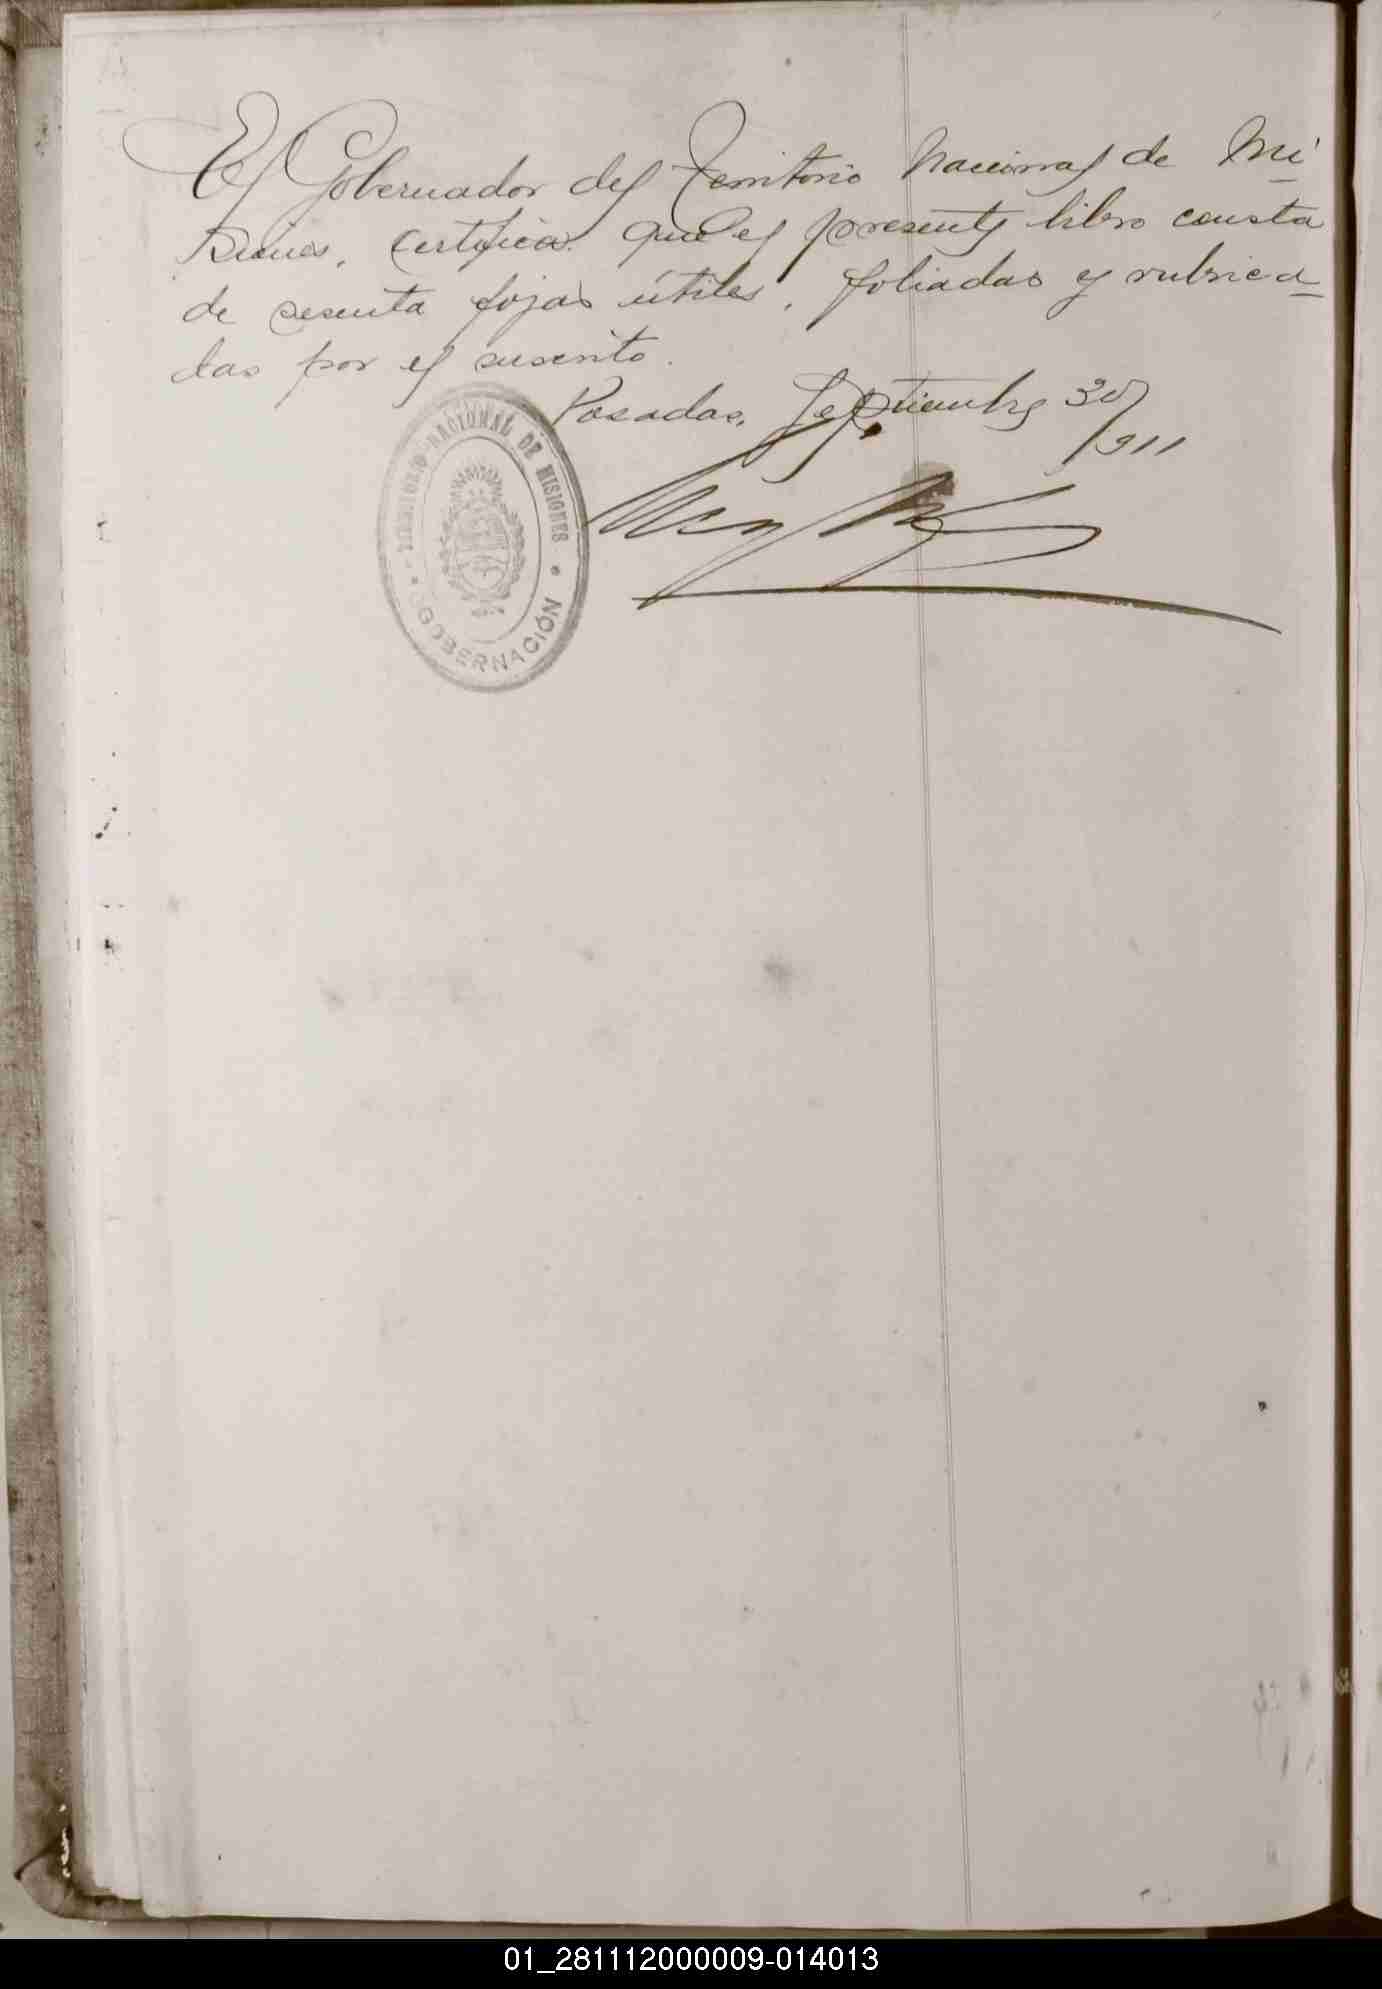 El Gobernador del Territorio Nacional de Mi-
siones, certifica: que el presente libro consta
de sesenta fojas útiles, foliadas y rubrica-
das por el suscrito.
Posadas, Septiembre 30/
/911
TERRITORIO NACIONAL DE MISIONES
GOBERNACIÓN
01_281112000009-014013